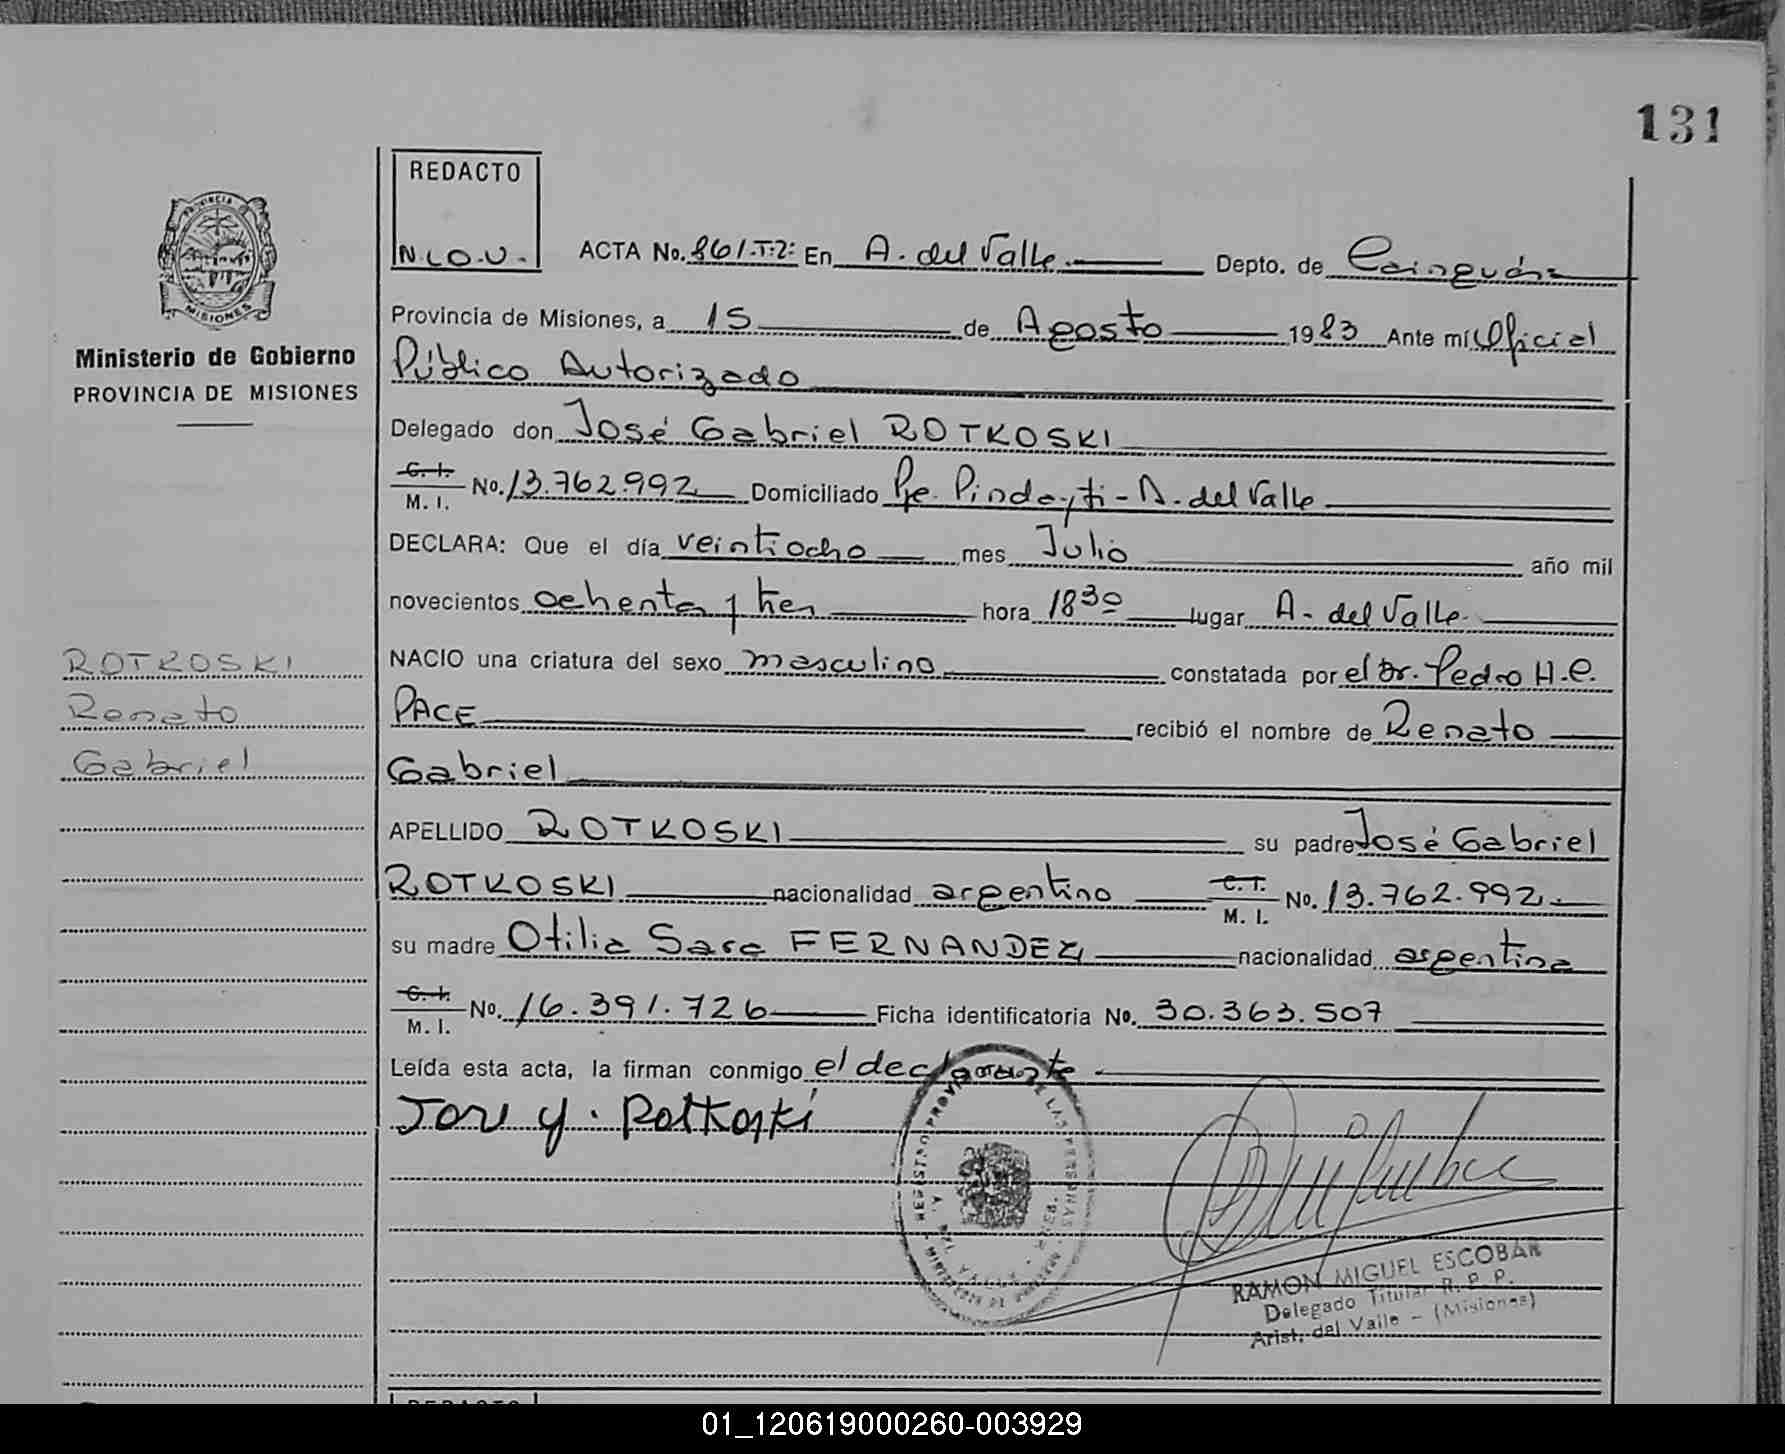 131
REDACTO
N.L.O.U.
PROVINCIA
MISIONES
Ministerio de Gobierno
PROVINCIA DE MISIONES
ACTA No. 861.T:2: En A. del Valle. Depto. de Cainguás
Provincia de Misiones, a 15 de Agosto 1983 Ante mí Oficial
Público Autorizado
Delegado don José Gabriel ROTKOSKI
C. I. M. I. No. 13.762.992 Domiciliado Pje. Pindayti - A. del Valle
DECLARA: Que el día veintiocho mes Julio año mil
novecientos ochenta y tres hora 18 30 lugar A. del Valle.
NACIO una criatura del sexo masculino constatada por el Dr. Pedro H.C.
PACE recibió el nombre de Renato
Gabriel
ROTKOSKI
Renato
Gabriel
APELLIDO ROTKOSKI su padre José Gabriel
ROTKOSKI nacionalidad argentino C. I. M. I. No. 13.762.992
su madre Otilia Sara FERNANDEZ nacionalidad argentina
C. I. M. I. No. 16.391.726 Ficha identificatoria No. 30.363.507
Leída esta acta, la firman conmigo el declarante
Jose G. Rotkoski
REGISTRO PROVINCIAL DE LAS PERSONAS
A. DEL VALLE
RAMON MIGUEL ESCOBAR
Delegado Titular R. P. P.
Arist. del Valle - (Misiones)
REDACTO
01_120619000260-003929